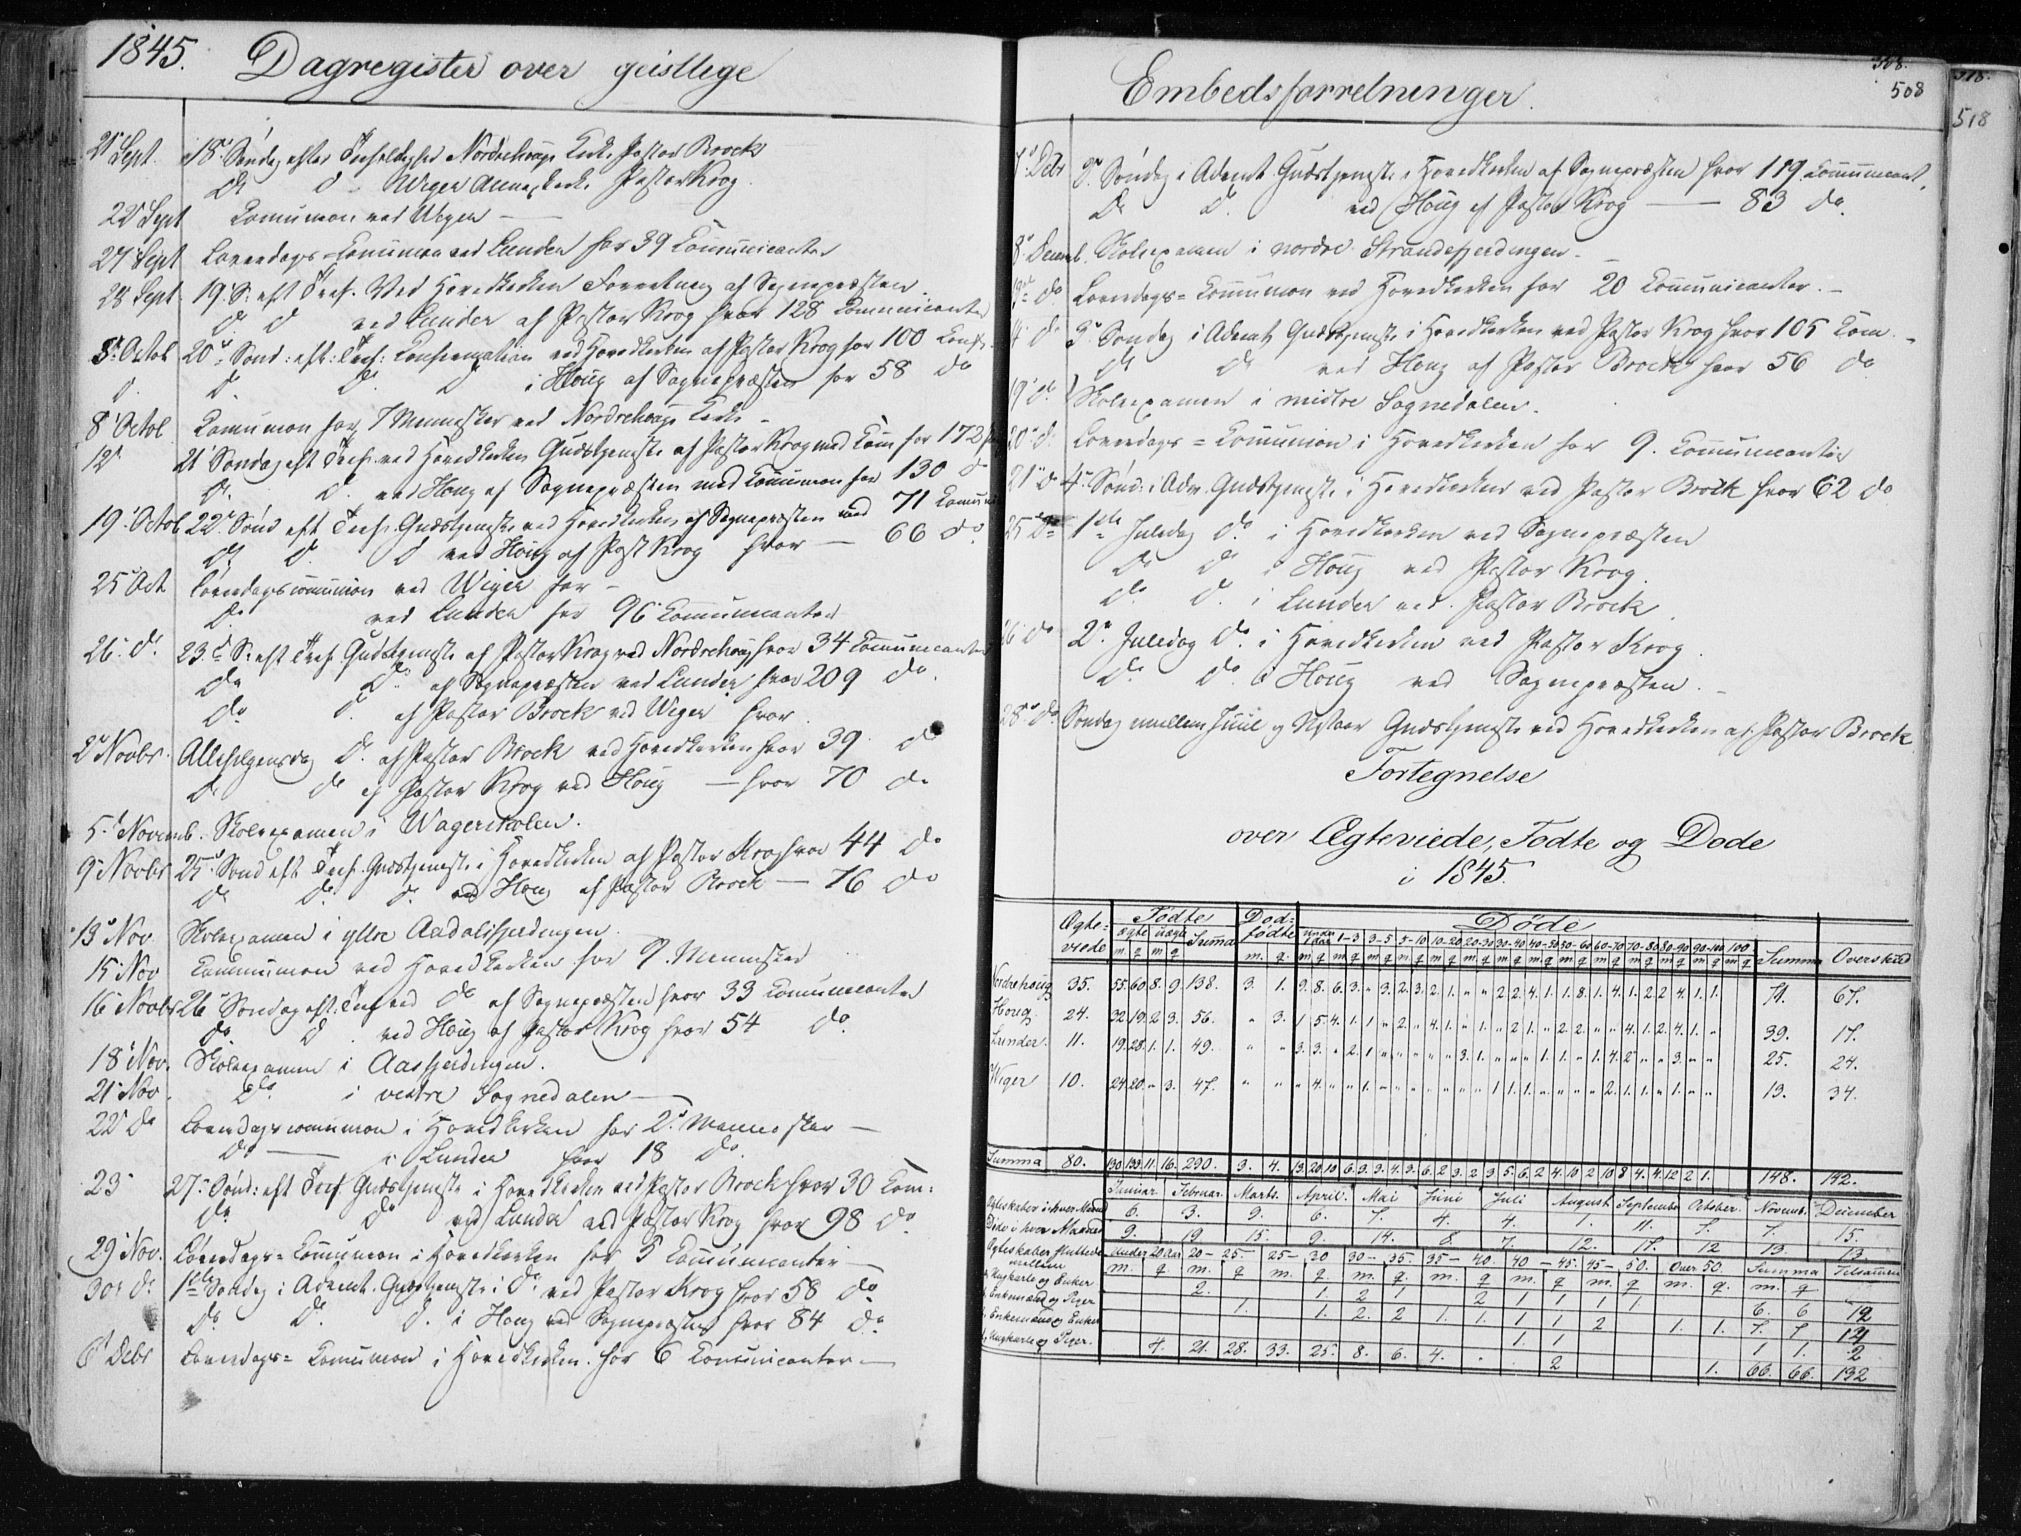 1845. Dagregister over geistlige
21 Sept. 18 Søndag efter Trefoldighed Nordrehougs Kirke Pastor Brock
D° D Wiger Annexkirke Pastor Krog
22 Sept Comunion ved Wiger
27 Sept Løverdags Comunion ved Lunder for 39 Communicanter
28 Sept 19 S: eft Tref. Ved Hovedkirken Forretning af Sognepræsten
D. D ved Lunder af Pastor Krog hvor 128 Communicanter
5 Octob 20 Sønd: eft: Tref: Confirmation ved Hovedkirken af Pastor Krog for 100 Conf
D. D. D i Houg af Sognepræsten for 58 D°
8 Octob Comunion for 7 Mennesker ved Nordrehougs Kirke
12 21 Søndag eft Tref. ved Hovedkirken Gudstjeneste af Pastor Krog med Com for 172
D. D. ved Houg af Sognepræsten med Comunion for 130 D
19 Octob 22 Sønd eft Tref. Gudstjeneste ved Hovedkirken af Sognepræsten med 71 Comuni
D. D. D ved Houg af Past Krog hvor — 66 D°
25 Oct Løverdagscomunion ved Wiger for —
D. ved Lunder for 96 Communicanter
26 D. 23 S: eft Tref Gudstjeneste af Pastor Krog ved Nordrehoug hvor 34 Communicanter
D° D° af Sognepræsten ved Lunder hvor 209 D°.
D° D. af Pastor Brock ved Wiger hvor
2 Novbr. Allehelgensdag D. af Pastor Brock ved Hovedkirken hvor 39 D
D. D° af Pastor Krog ved Houg — hvor 70 D.
5 Novemb. Skoleexamen i Wagerskolen.
9 Novbr 25 Sønd eft Tref. Gudstjeneste i Hovedkirken af Pastor Krog hvor 44 D°
D. D. D. ved Houg af Pastor Brock — 76 D°
13 Nov. Skoleexamen i yttre Aadalsfjerdingen
15 Nov Communion ved Hovedkirken for 9 Mennesker
16 Novbr 26 Søndag eft. Tref ved D° af Sognepræsten hvor 33 Comunicanter
D° D. ved Houg af Pastor Krog hvor 54 D°.
18 Nov. Skoleexamen i Aasfjerdingen.
21 Nov. D° i vestre Sognedalen —
22 D° Løverdagscomunion i Hovedkirken for 2 Mennesker —
D° — i Lunder hvor 18 D°.
23 27 Sønd: eft Tref Gudstjeneste i Hovedkirken ved Pastor Brock hvor 30 Com:
D° D° ved Lunder ved Pastor Krog hvor 98 D°
29 Nov. Løverdags=Communion i Hovedkirken for 5 Communicanter —
30 D. 1ste Søndag i Advent. Gudstjeneste i D. ved Pastor Krog hvor 58 D°
D. D. D. i Houg ved Sognepræsten hvor 84 D.°
6 Debr Løverdags= Comunion i Hovedkirken for 6 Comunicanter —
Embedsforretninger.
308.
508
318.
518
7 Debr 2 Søndag i Advent Gudstjeneste i Hovedkirken af Sognepræsten hvor 119 Communicant.
D° D. ved Houg af Pastor Krog — 83 D°.
8 Decemb. Skoleexamen i nordre Strandefjerdingen.
D° Løverdags=Communion ved Hovedkirken for 20 Communicanter. —
D 3 Søndag i Advent Gudstjeneste i Hovedkirken ved Pastor Krog hvor 105 Com.
D° D° ved Houg af Pastor Brock hvor 56 D°
19 D. Skoleexamen i midtre Sognedalen.
20 D. Løverdags=Communion i Hovedkirken for 9. Communicanter
21 D 4 Sønd. i Adv. Gudstjeneste i Hovedkirken ved Pastor Brock hvor 62 D°
25 D° 1ste Juledag D°. i Hovedkirken ved Sognepræsten
D° D° i Houg ved Pastor Krog.
D° D. i Lunder ved Pastor Brock
26 D° 2. Juledag D°. i Hovedkirken ved Pastor Krog.
D. D°. i Houg ved Sognepræsten. —
28 D° Søndag mellem Juul og Nytaar Gudstjeneste ved Hovedkirken af Pastor Brock
Fortegnelse
over Ægteviede, Fødte og Døde
i 1845.
Ægteviede Fødte Dødfødte Døde
ægte uægte Summa under 1 aar 1-3 3-5 5-10 10-20 20-30 30-40 40-50 50-60 60-70 70-80 80-90 90-100 100 Summa Overskud
Nordrehoug 35. 55. 60. 8. 9. 138. 3. 1. 9. 8. 6. 3. „ 3. 2. 3. 2. 1. „ „ 2 2. 4. 1. 1. 8. 1. 4. 1. 2 2 4. 1. 1. 71. 67.
Houg. 24. 32 19. 2 3. 56. „ 3. 1 5. 4. 1. 1 „ 2. „ 4. 1. „ 1. „ 2 1. „ 2 2. „ „ 4. 1. 2. 4. 1. „ 39. 17.
Lunder. 11. 19. 28. 1. 1. 49. „ „ 3. 3. „ 2. 1 „ „ „ „ „ 3. 1. „ „ „ 1. 1. „ 1. 4. 2 „ „ 3. „ „ 25. 24.
Wiger 10. 24 20. „ 3. 47. „ „ „ 4. „ „ 1. „ „ „ „ „ „ „ 1 1. 1. „ „ „ „ 2. 1. 1. „ 1. „ „ 13. 34.
Summa 80. 130 133. 11. 16. 290. 3. 4. 13. 20. 10 6. 3. 3. 4. 3. 6. 2 3. 2 3 5. 6. 2 4. 10 2 10 8 4. 4. 12 2 1. 148. 142.
Januar. Februar. Marts. April. Mai Juni Juli August September October. Novemb. December
Ægteskaber i hver Maaned 6. 3. 9. 6. 7. 4. 4. 1. 11. 7. 7. 15.
Døde i hver Maaned 9. 19 15. 9. 14. 8 7. 12. 17. 12 13. 13
Ægteskaber sluttede mellem Under 20 Aar 20 — 25. 25 — 30 30 — 35. 35 — 40. 40 — 45. 45 — 50. Over 50. Summa Tilsammen
m. q m. q m. q. m. q. m. q m. q m. q m. q. m. q
Ungkarle og Enker 2. 1. 2 1 2 1 1 1 1 6. 6 12
Enkemænd og Piger 1. 1. 2. 2 1. 1. 1 1 2 1. 1. 7. 7. 14
Enkemænd og Enker 1 1. 1 1. 2
Ungkarle og Piger. 4. 21. 28. 33. 25. 8. 6. 4. 2 1. 66. 66. 132